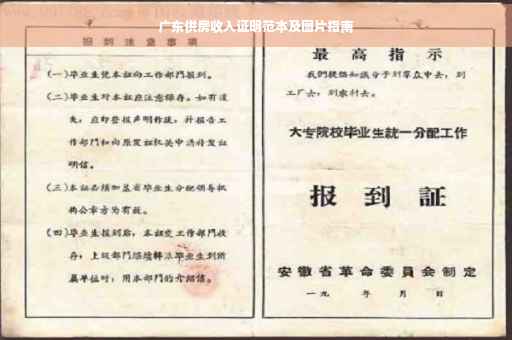 广东供房收入证明范本及图片指南
报到注意事项
(一)毕业生凭本证向工作部门报到。
(二)毕业生对本证应注意保存。如有遗
失,应即登报声明作废,并报告工
作部门和向原发证机关申请补发证
明信。
(三)本证必须加盖省毕业生分配领导机
构公章方为有效。
(四)毕业生报到后,本证交工作部门收
存;上级部门继续转派毕业生到所
属单位时,用本部门的介绍信。
最高指示
我们提倡知识分子到群众中去,到
工厂去,到农村去。
大专院校毕业生统一分配工作
报到証
安徽省革命委員会制定
一九 年 月 日